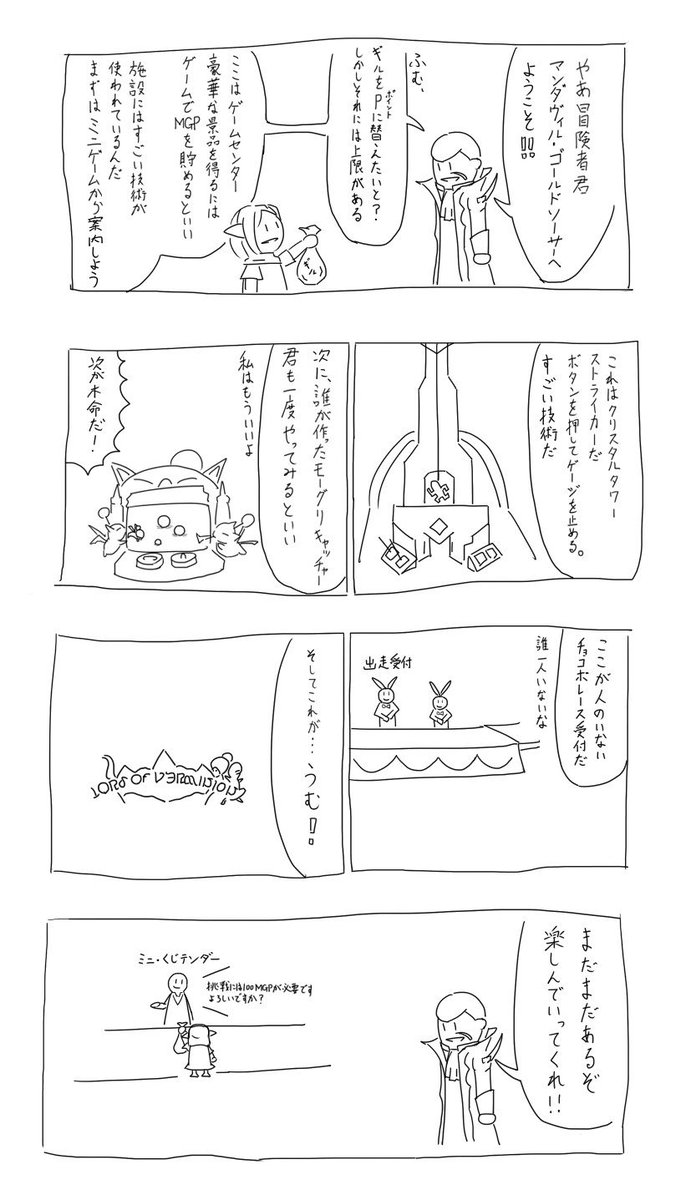 やあ冒険者君
マンダヴィル・ゴールドソーサーへ
ようこそ!!
ふむ、
ギルをPに替えたいと?
ポイント
しかしそれには上限がある
ギル
ここはゲームセンター
豪華な景品を得るには
ゲームでMGPを貯めるといい
施設にはすごい技術が
使われているんだ
まずはミニゲームから案内しよう
これはクリスタルタワー
ストライカーだ
ボタンを押してゲージを止める。
すごい技術だ
次に、誰が作ったモーグリキャッチャー
君も一度やってみるといい
私はもういいよ
次が本命だ!
ここが人のいない
チョコボレース受付だ
誰一人いないな
出走受付
そしてこれが…、つむ!!
LORD OF VERMILION
まだまだあるぞ
楽しんでいってくれ!!
ミニ・くじテンダー
挑戦には100MGPが必要です
よろしいですか?